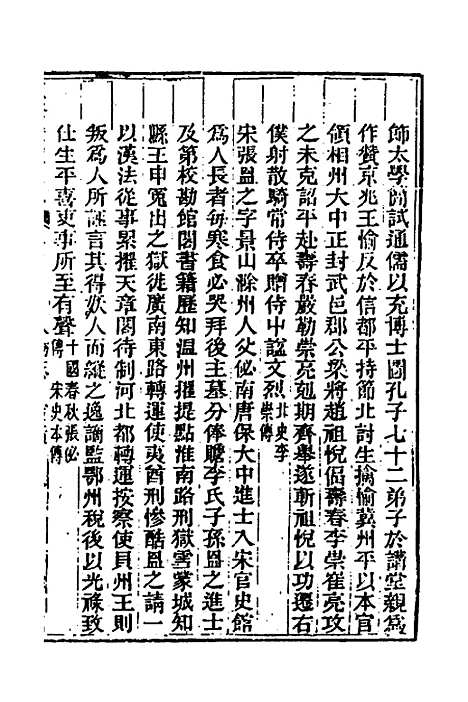 師太學簡試通儒以充博士圖孔子七十二弟子於講堂親爲
作贊京兆王愉反於信都平持節北討生擒愉冀州平以本官
領相州大中正封武邑郡公梁將趙祖悅偪壽春李崇崔亮攻
之未克詔平赴壽春嚴勒崇亮剋期齊舉遂斬祖悅以功遷右
僕射散騎常侍卒贈侍中諡文烈北史李崇傳
宋張昷之字景山滁州人父佖南唐保大中進士入宋官史館
爲人長者每寒食必哭拜後主墓分俸贍李氏子孫昷之進士
及第校勘館閣書籍歷知溫州擢提點淮南路刑獄雪蒙城知
縣王申冤出之獄徙廣南東路轉運使夷酋刑慘酷昷之請一
以漢法從事累擢天章閣待制河北都轉運按察使貝州王則
叛爲人所誣言其得妖人而縱之逸謫監鄂州稅後以光祿致
仕生平喜吏事所至有聲十國春秋張佖傳宋史本傳